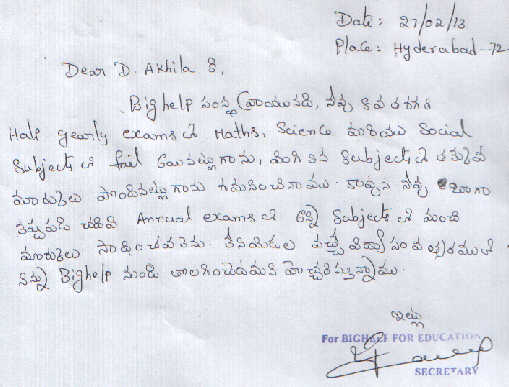 Date: 27/02/13
Place: Hyderabad-72
Dear D. Akhila 8,
Bighelp సంస్థ వ్రాయునది, నీవు
Half yearly exams లో Maths, Science మరియు Social
Subjects లో fail మిగిలిన Subjects లో తక్కువ
మార్కులు గమనించినాము. కావున నీవు బాగా
చదివి Annual exams లో అన్ని Subjects లో మంచి
మార్కులు సాధించవలెను. లేనియెడల వచ్చే విద్యా సంవత్సరములో
నిన్ను Bighelp నుండి తొలగించెదమని హెచ్చరిస్తున్నాము.
ఇట్లు
For BIGHELP FOR EDUCATION
SECRETARY